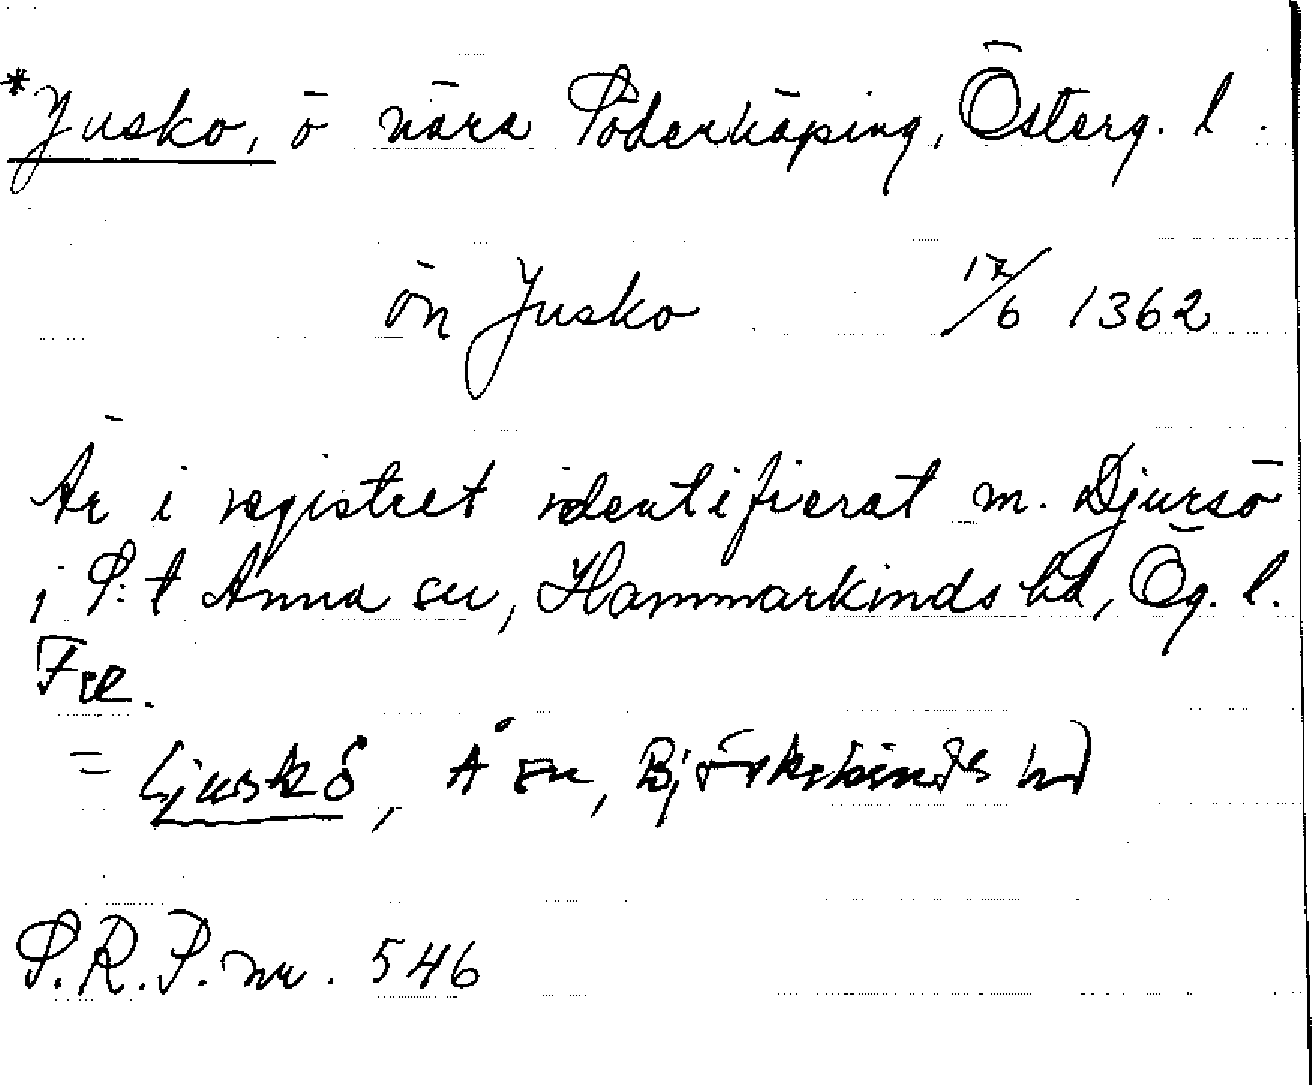 *Jusko, ö nära Söderköping, Österg. l.
ön Jusko 17/6 1362
Är i registret identifierat m. Djursö
i S:t Anna sn, Hammarkinds hd, Ög. l.
= Ljuskö, Å sn, Björkekinds hd
S.R.P. nr. 546